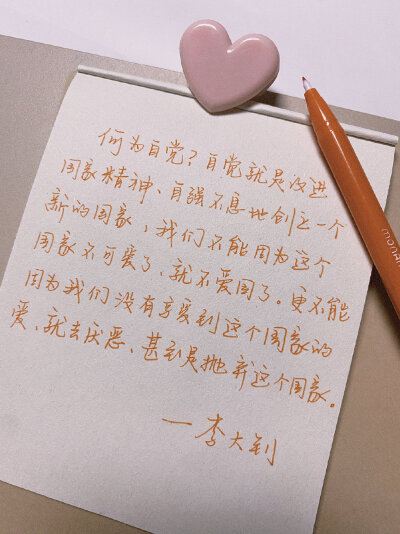 何为自觉？自觉就是改进
国家精神、自强不息地创立一个
新的国家，我们不能因为这个
国家不可爱了、就不爱国了。更不能
因为我们没有享受到这个国家的
爱、就去厌恶、甚到是抛弃这个国家。
—李大钊
monami